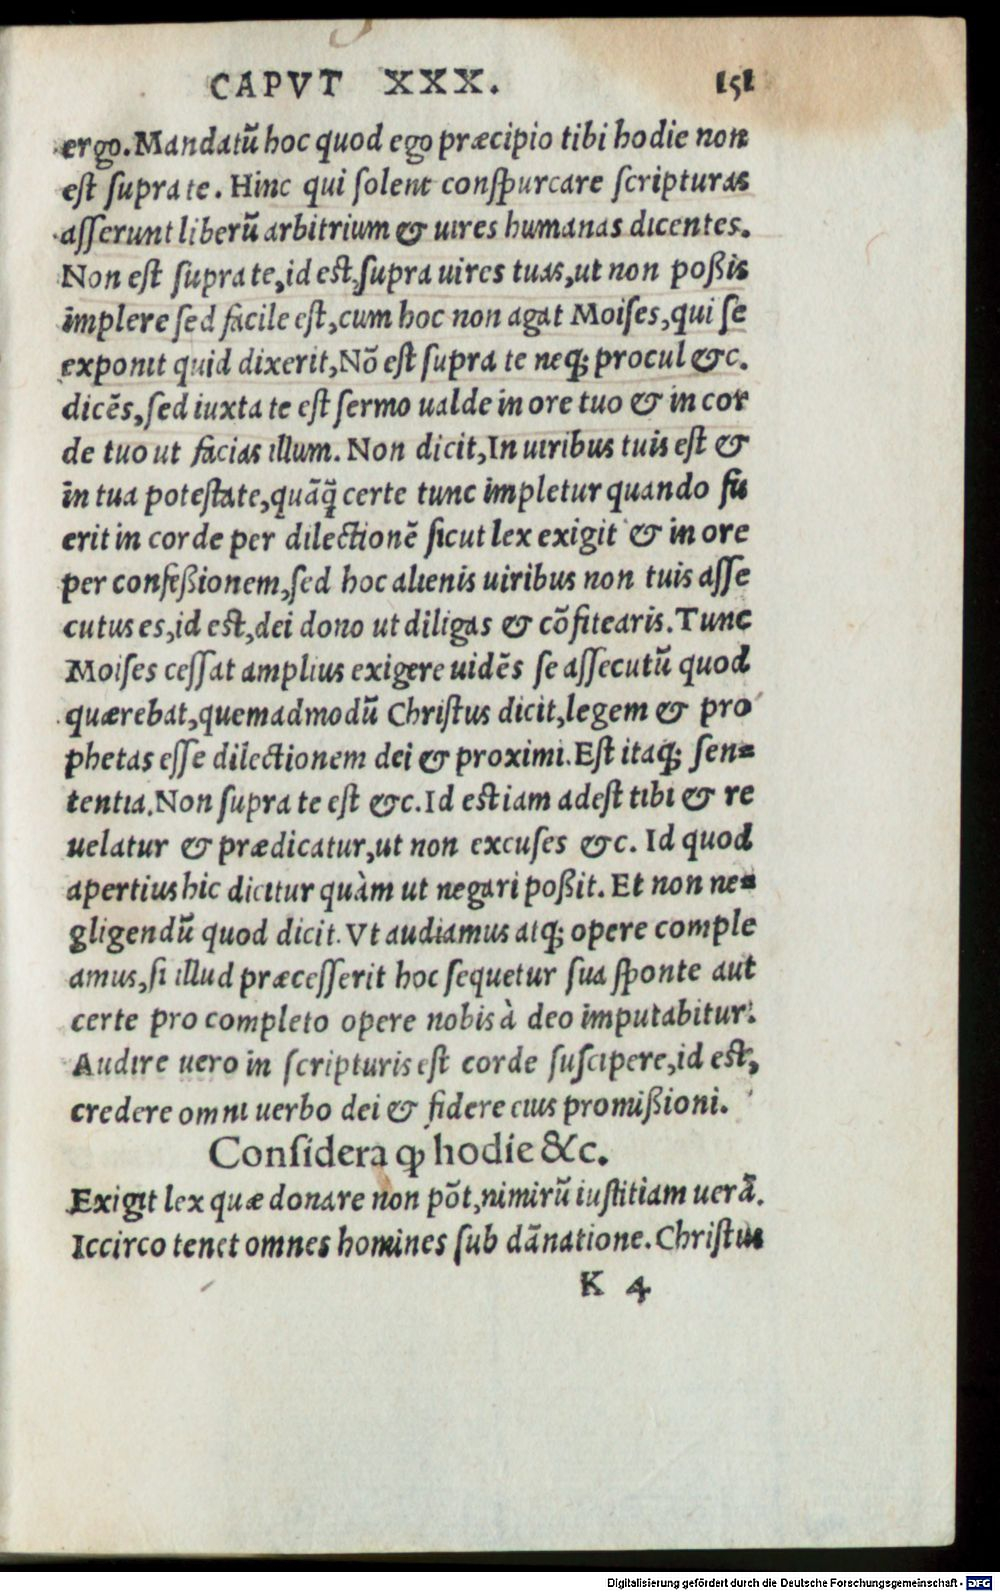 CAPVT XXX. 151
ergo. Mandatũ hoc quod ego præcipio tibi hodie non
est supra te. Hinc qui solent conspurcare scripturas
asserunt liberũ arbitrium & uires humanas dicentes.
Non est supra te, id est, supra uires tuas, ut non poßis
implere sed facile est, cum hoc non agat Moises, qui se
exponit quid dixerit, Nõ est supra te neq; procul &c.
dicẽs, sed iuxta te est sermo ualde in ore tuo & in cor
de tuo ut facias illum. Non dicit, In uiribus tuis est &
in tua potestate, quãq̃ certe tunc impletur quando fu
erit in corde per dilectionẽ sicut lex exigit & in ore
per confeßionem, sed hoc alienis uiribus non tuis asse
cutus es, id est, dei dono ut diligas & cõfitearis. Tunc
Moises cessat amplius exigere uidẽs se assecutũ quod
quærebat, quemadmodũ Christus dicit, legem & pro
phetas esse dilectionem dei & proximi. Est itaq; sen=
tentia. Non supra te est &c. Id est iam adest tibi & re
uelatur & prædicatur, ut non excuses &c. Id quod
apertius hic dicitur quàm ut negari poßit. Et non ne=
gligendũ quod dicit. Vt audiamus atq; opere comple
amus, si illud præcesserit hoc sequetur sua sponte aut
certe pro completo opere nobis à deo imputabitur.
Audire uero in scripturis est corde suscipere, id est,
credere omni uerbo dei & fidere eius promißioni.
Considera ꝙ hodie &c.
Exigit lex quæ donare non põt, nimirũ iustitiam uerã.
Iccirco tenet omnes homines sub dãnatione. Christus
K 4
Digitalisierung gefördert durch die Deutsche Forschungsgemeinschaft - DFG